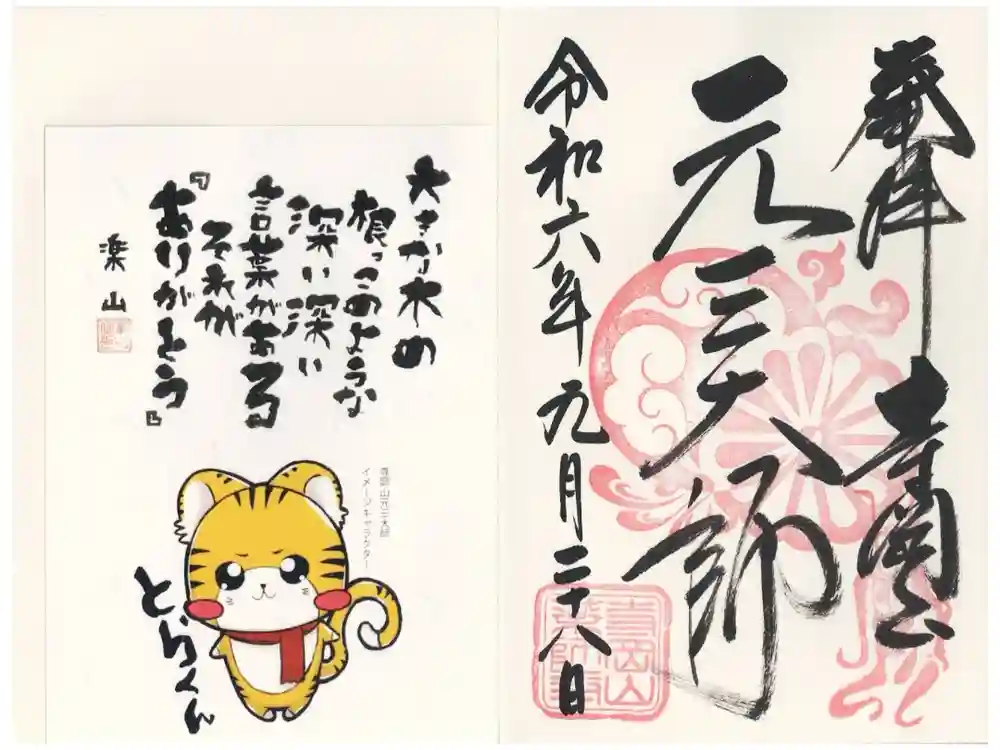 奉拝 寺岡山
元三大師
令和六年九月二十八日
寺岡山
薬師寺
大きな木の
根っこのような
深い深い
言葉がある
それが
『ありがとう』
楽山
寺岡山元三大師
イメージキャラクター
とらくん